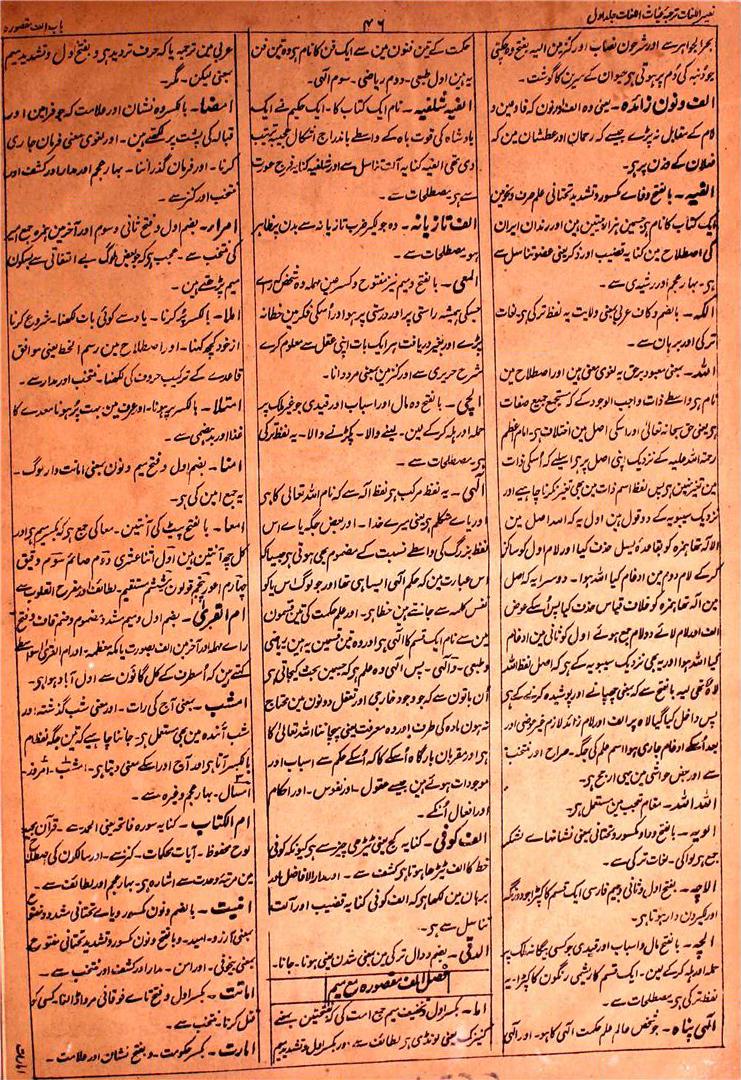 نصیر اللغات ترجمہ غیاث اللغات جلد اول
۴۶
باب الف مقصورہ
بحر الجواہر سے اور شرح نصاب اور کنز مین الیہ بفتح وہ چکتی
جو دنبہ کی دم پر ہوتی ہی حیوان کے سرین کا گوشت ۔
الف و نون زائدہ ۔ یعنی وہ الف اور نون کہ فا و عین و
لام کے مقابل نہ پڑے جیسے کہ رحمان اور عطشان مین کہ
فعلان کے وزن پر ہی ۔
الفیہ ۔ بالفتح و فاے کسور و تشدید تحتانی علم صرف و نحو مین
ایک کتاب کا نام ہی جسمین ہزار بیتین ہین اور رندان ایران
کی اصطلاح مین کنایہ قضیب اور ذکر یعنی عضو تناسل سے
ہی ۔ بہار عجم اور رشیدی سے ۔
الکہ ۔ بالضم و کاف عربی بمعنی ولایت یہ لفظ ترکی ہی لغات
ترکی اور برہان سے ۔
اللہ ۔ بمعنی معبود برحق یہ لغوی معنی ہین اور اصطلاح مین
نام ہی واسطے ذات واجب الوجود کے کہ مستجمع جمیع صفات
ہی یعنی حق سبحانہ تعالی اور اسکی اصل مین اختلاف ہی ۔ امام اعظم
رحمۃ اللہ علیہ کے نزدیک اپنی اصل پر ہی اسلیے کہ اسکی ذات
مین تغیر نہین ہی پس لفظ اسم ذات مین بھی تغیر نکرنا چاہیے اور
نزدیک سیبویہ کے دو قول ہین اول یہ کہ اللہ اصل مین
الالہ تھا ہمزہ کو بقاعدہ یسل حذف کیا اور لام اول کو ساکن
کر کے لام دوم مین ادغام کیا اللہ ہوا ۔ دوسرا یہ کہ اصل
مین الہ تھا ہمزہ کو خلاف قیاس حذف کیا پس اسکے عوض
الف اور لام لائے دو لام جمع ہوئے اول کو ثانی مین ادغام
کیا اللہ ہوا اور یہ بھی نزدیک سیبویہ کے ہی کہ اصل لفظ اللہ
لاہ تھی لیہ بالفتح سے کہ بمعنی چھپانے اور پوشیدہ کرنے کے ہی
پس داخل کیا گیا لاہ پر الف اور لام زائد لازم غیر عوضی اور
بعد اسکے ادغام جاری ہوا اسم علم کی جگہ ۔ صراح اور منتخب
سے اور بعض حواشی مین یہی ارجح ہی ۔
اللہ اللہ ۔ مقام تعجب مین مستعمل ہی ۔
الویہ ۔ بالفتح و واو کسور و تحتانی بمعنی نشانہاے لشکر
جمع ہی لوا کی ۔ لغات ترکی سے ۔
الاچہ ۔ بفتح اول و ثانی و جیم فارسی ایک قسم کا کپڑا جو دو رنگہ
اور لکیرون دار ہوتا ہی ۔
الجہ ۔ بالفتح مال و اسباب اور قیدی جو کسی بیگانہ ملک پر
حملہ اور پلہ کر کے لین ۔ ایک قسم کا ریشمی رنگون کا کپڑا ۔ یہ
لفظ ترکی ہی مصطلحات سے ۔
الٰہی پناہ ۔ جو شخص عالم علم حکمت الٰہی کا ہو ۔ اور الٰہی
حکمت کے تین فنون مین سے ایک فن کا نام ہی وہ تین فن
یہ ہین اول طبعی ۔ دوم ریاضی ۔ سوم الٰہی ۔
الفیہ شلفیہ ۔ نام ایک کتاب کا ۔ ایک حکیم نے ایک
بادشاہ کی قوت باہ کے واسطے باندراج اشکال عجیبہ ترتیب
دی تھی الفیہ کنایہ آلت تناسل سے اور شلفیہ کنایہ فرج عورت
سے ہی مصطلحات سے ۔
الف تازیانہ ۔ وہ جو لکیر ضرب تازیانہ سے بدن پر ظاہر
ہو مصطلحات سے ۔
المعی ۔ بالفتح و میم نیز مفتوح و کسر عین مہملہ وہ شخص کہ رائے
جسکی ہمیشہ راستی پر اور درستی پر ہو اور اسکی فکر مین خطا نہ
پڑے اور بغیر دریافت ہر ایک بات اپنی عقل سے معلوم کرے
شرح حریری سے اور کنز مین بمعنی مرد دانا ۔
الجی ۔ بالفتح وہ مال اور اسباب اور قیدی جو غیر ملک پر
حملہ اور پلہ کر کے لین ۔ لینے والا ۔ پکڑنے والا ۔ یہ لفظ ترکی
ہی مصطلحات سے ۔
الٰہی ۔ یہ لفظ مرکب ہی لفظ الہ سے کہ نام اللہ تعالی کا ہی
اور یاے متکلم ہی یعنی میرے خدا ۔ اور بعض جگہ یاے اس
لفظ بزرگ کی واسطے نسبت کے مضموم بھی ہوتی ہی جیسا کہ
اس عبارت مین کہ حکم الٰہی ایسا ہی تھا اور جو لوگ اس یا کو
نفس کلمہ سے جانتے ہین خطا ہی ۔ اور علم حکمت کی تین قسمون
مین سے نام ایک قسم کا الٰہی ہی اور وہ تین قسمین یہ ہین ریاضی
و طبعی ۔ و الٰہی ۔ پس الٰہی وہ علم ہی کہ جسمین بحث کیجاتی ہی
ان باتون سے کہ جو وجود خارجی اور تعقل دونون مین محتاج
نہ ہون مادہ کی طرف اور وہ معرفت یعنی پہچاننا اللہ تعالی کا
ہی اور مقربان بارگاہ اسکے کا کہ اسکے حکم سے اسباب اور
موجودات ہوئے ہین جیسے عقول ۔ اور نفوس ۔ اور احکام
اور افعال انکے ۔
الف کوفی ۔ کنایہ کج یعنی ٹیڑھی چیز سے ہی کیونکہ کوفی
خط کا الف ٹیڑھا ہوتا ہی کشف سے ۔ اور مدار الافاضل اور
برہان مین لکھا ہی کہ الف کوفی کنایہ قضیب اور آلت
تناسل سے ہی ۔
الدقی ۔ بضم و دال ترکی مین بمعنی شدن یعنی ہونا ۔ جانا ۔
فصل الف مقصورہ مع میم
اما ۔ بکسر اول و تخفیف میم جمع امت کی کہ بفتحتین بمعنے
کنیزک یعنی لونڈی ہی لطائف سے ۔ اور بکسر اول و تشدید میم
عربی مین ترجمہ یا کہ حرف تردید ہی و بفتح اول و تشدید میم
بمعنی لیکن ۔ مگر ۔
امضا ۔ بالکسر وہ نشان اور علامت کہ جو فرامین اور
قبالہ کی پشت پر لکھتے ہین ۔ اور لغوی معنی فرمان جاری
کرنا ۔ اور فرمان گذراننا ۔ بہار عجم اور مدار اور کشف اور
منتخب اور کنز سے ۔
امرا ۔ بضم اول و فتح ثانی و سوم اور آخر مین ہمزہ جمع امیر
کی منتخب سے ۔ عجب ہی کہ بعض لوگ بے التفاتی سے بسکون
میم پڑھتے ہین ۔
املا ۔ بالکسر پر کرنا ۔ یاد سے کوئی بات لکھنا ۔ شروع کرنا
از خود کچھ کہنا ۔ اور اصطلاح مین رسم الخط یعنی موافق
قاعدے کے ترکیب حروف کی لکھنا ۔ منتخب اور مدار سے ۔
امتلا ۔ بالکسر پر ہونا ۔ اور عرف مین بہت پر ہونا معدے کا
غذا اور بدہضمی سے ۔
امنا ۔ بضم اول و فتح میم و نون بمعنی امانت دار لوگ ۔
یہ جمع امین کی ہی ۔
امعا ۔ بالفتح پیٹ کی آنتین ۔ معا کی جمع ہی کہ بکسر میم ہی اور
کل چھ آنتین ہین اول اثنا عشری دوم صائم سوم دقیق
چہارم اعور پنجم قولون ششم مستقیم ۔ لطائف اور مفرح القلوب سے
ام القریٰ ۔ بضم اول و میم مشدد مضموم و ضم قاف و فتح
راے مہملہ اور آخر مین الف بصورت یا مکہ معظمہ ۔ اور ام القریٰ اسواسطے
کہتے ہین کہ اسطرف کے کل گانون سے اول آباد ہوا ہی ۔
امشب ۔ بمعنی آج کی رات ۔ اور بمعنی شب گذشتہ ۔ اور
شب آئندہ مین بھی مستعمل ہی ۔ جاننا چاہیے کہ تین جگہ لفظ ام
بالکسر آتا ہی اور آج اور اسکے معنی دیتا ہی ۔ امشب ۔ امروز ۔
امسال ۔ بہار عجم وغیرہ سے ۔
ام الکتاب ۔ کنایہ سورہ فاتحہ یعنی الحمد سے ۔ قرآن مجید
لوح محفوظ ۔ آیات محکمات ۔ کنز سے ۔ اور سالکون کی اصطلاح
مین مرتبہ وحدت سے اشارہ ہی ۔ بہار عجم اور لطائف سے ۔
امنیت ۔ بالضم و نون کسور و یاے تحتانی مشدد و مفتوح
بمعنی آرزو ۔ امید ۔ و بالفتح و نون کسور و تشدید تحتانی مفتوح
بمعنی بیخوفی ۔ اور امن ۔ مدار اور کشف اور منتخب سے ۔
اماتت ۔ بکسر اول و فتح تاے فوقانی مروا ڈالنا ۔ کسی کو
قتل کرنا ۔ منتخب سے ۔
امارت ۔ بکسر حکومت ۔ و بفتح نشان اور علامت ۔